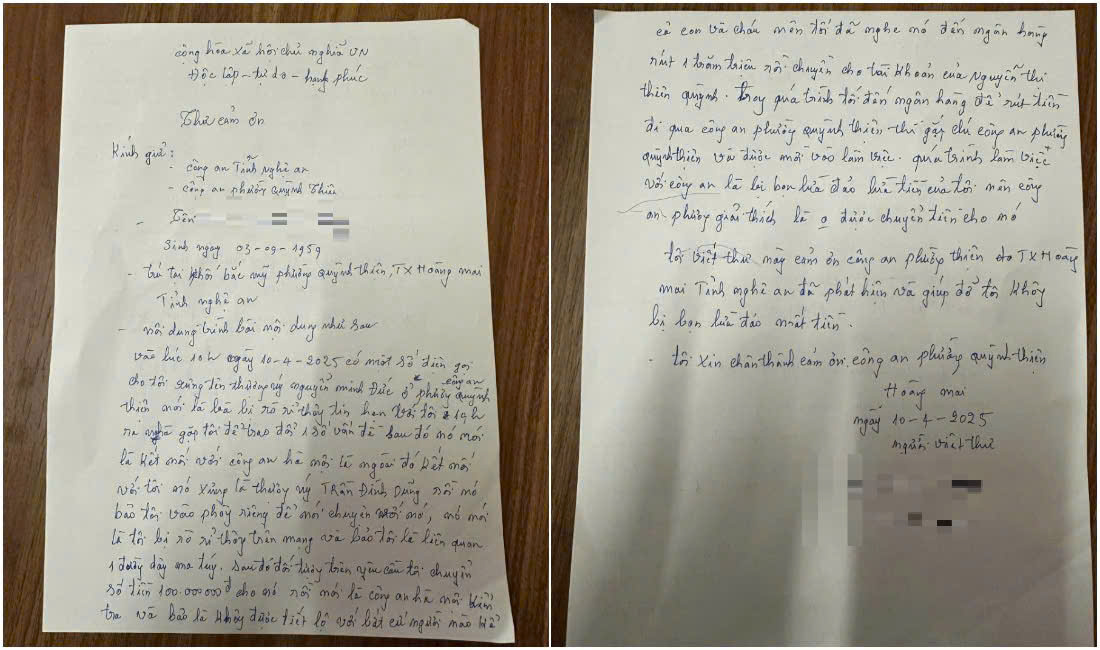 cộng hòa xã hội chủ nghĩa VN
Độc lập - tự do - hạnh phúc
Thư cảm ơn
Kính gửi:
- công an Tỉnh nghệ an
- công an phường quỳnh Thiện
- Tên
Sinh ngày 03-09-1959
- trú tại khối bắc mỹ phường quỳnh thiện, TX Hoàng mai
Tỉnh nghệ an
- nội dung trình bài nội dung như sau
vào lúc 10h ngày 10-4-2025 có một số điện gọi
cho tôi xưng tên thượng úy nguyễn minh Đức ở công an phường quỳnh
thiện nói là bà bị rò rỉ thông tin hẹn với tôi 19h
ra gặp tôi để trao đổi 1 số vấn đề sau đó nó nói
là kết nối với công an hà nội là ngoài đó kết nối
với tôi nó xưng là thượng úy TRần Đình Dũng rồi nó
bảo tôi vào phòng riêng để nói chuyện với nó, nó nói
là tôi bị rò rỉ thông trên mạng và bảo tôi là liên quan
1 đường dây ma túy. sau đó đối tượng trên yêu cầu tôi chuyển
số tiền 100.000.000đ cho nó rồi nói là công an hà nội kiểm
tra và bảo là không được tiết lộ với bất cứ người nào kể
cả con và cháu nên tôi đã nghe nó đến ngân hàng
rút 1 trăm triệu rồi chuyển cho tài khoản của Nguyễn thị
thiên quỳnh. trong quá trình tôi đến ngân hàng để rút tiền
đi qua công an phường quỳnh thiện thì gặp chú công an phường
quỳnh thiện và được mời vào làm việc. quá trình làm việc
với công an là bị bọn lừa đảo lừa tiền của tôi nên công
an phường giải thích là 0 được chuyển tiền cho nó
tôi viết thư này cảm ơn công an phường thiện TX Hoàng
mai Tỉnh nghệ an đã phát hiện và giúp đỡ tôi không
bị bọn lừa đảo mất tiền.
- tôi xin chân thành cảm ơn. công an phường quỳnh thiện
Hoàng mai
ngày 10-4-2025
người viết thư